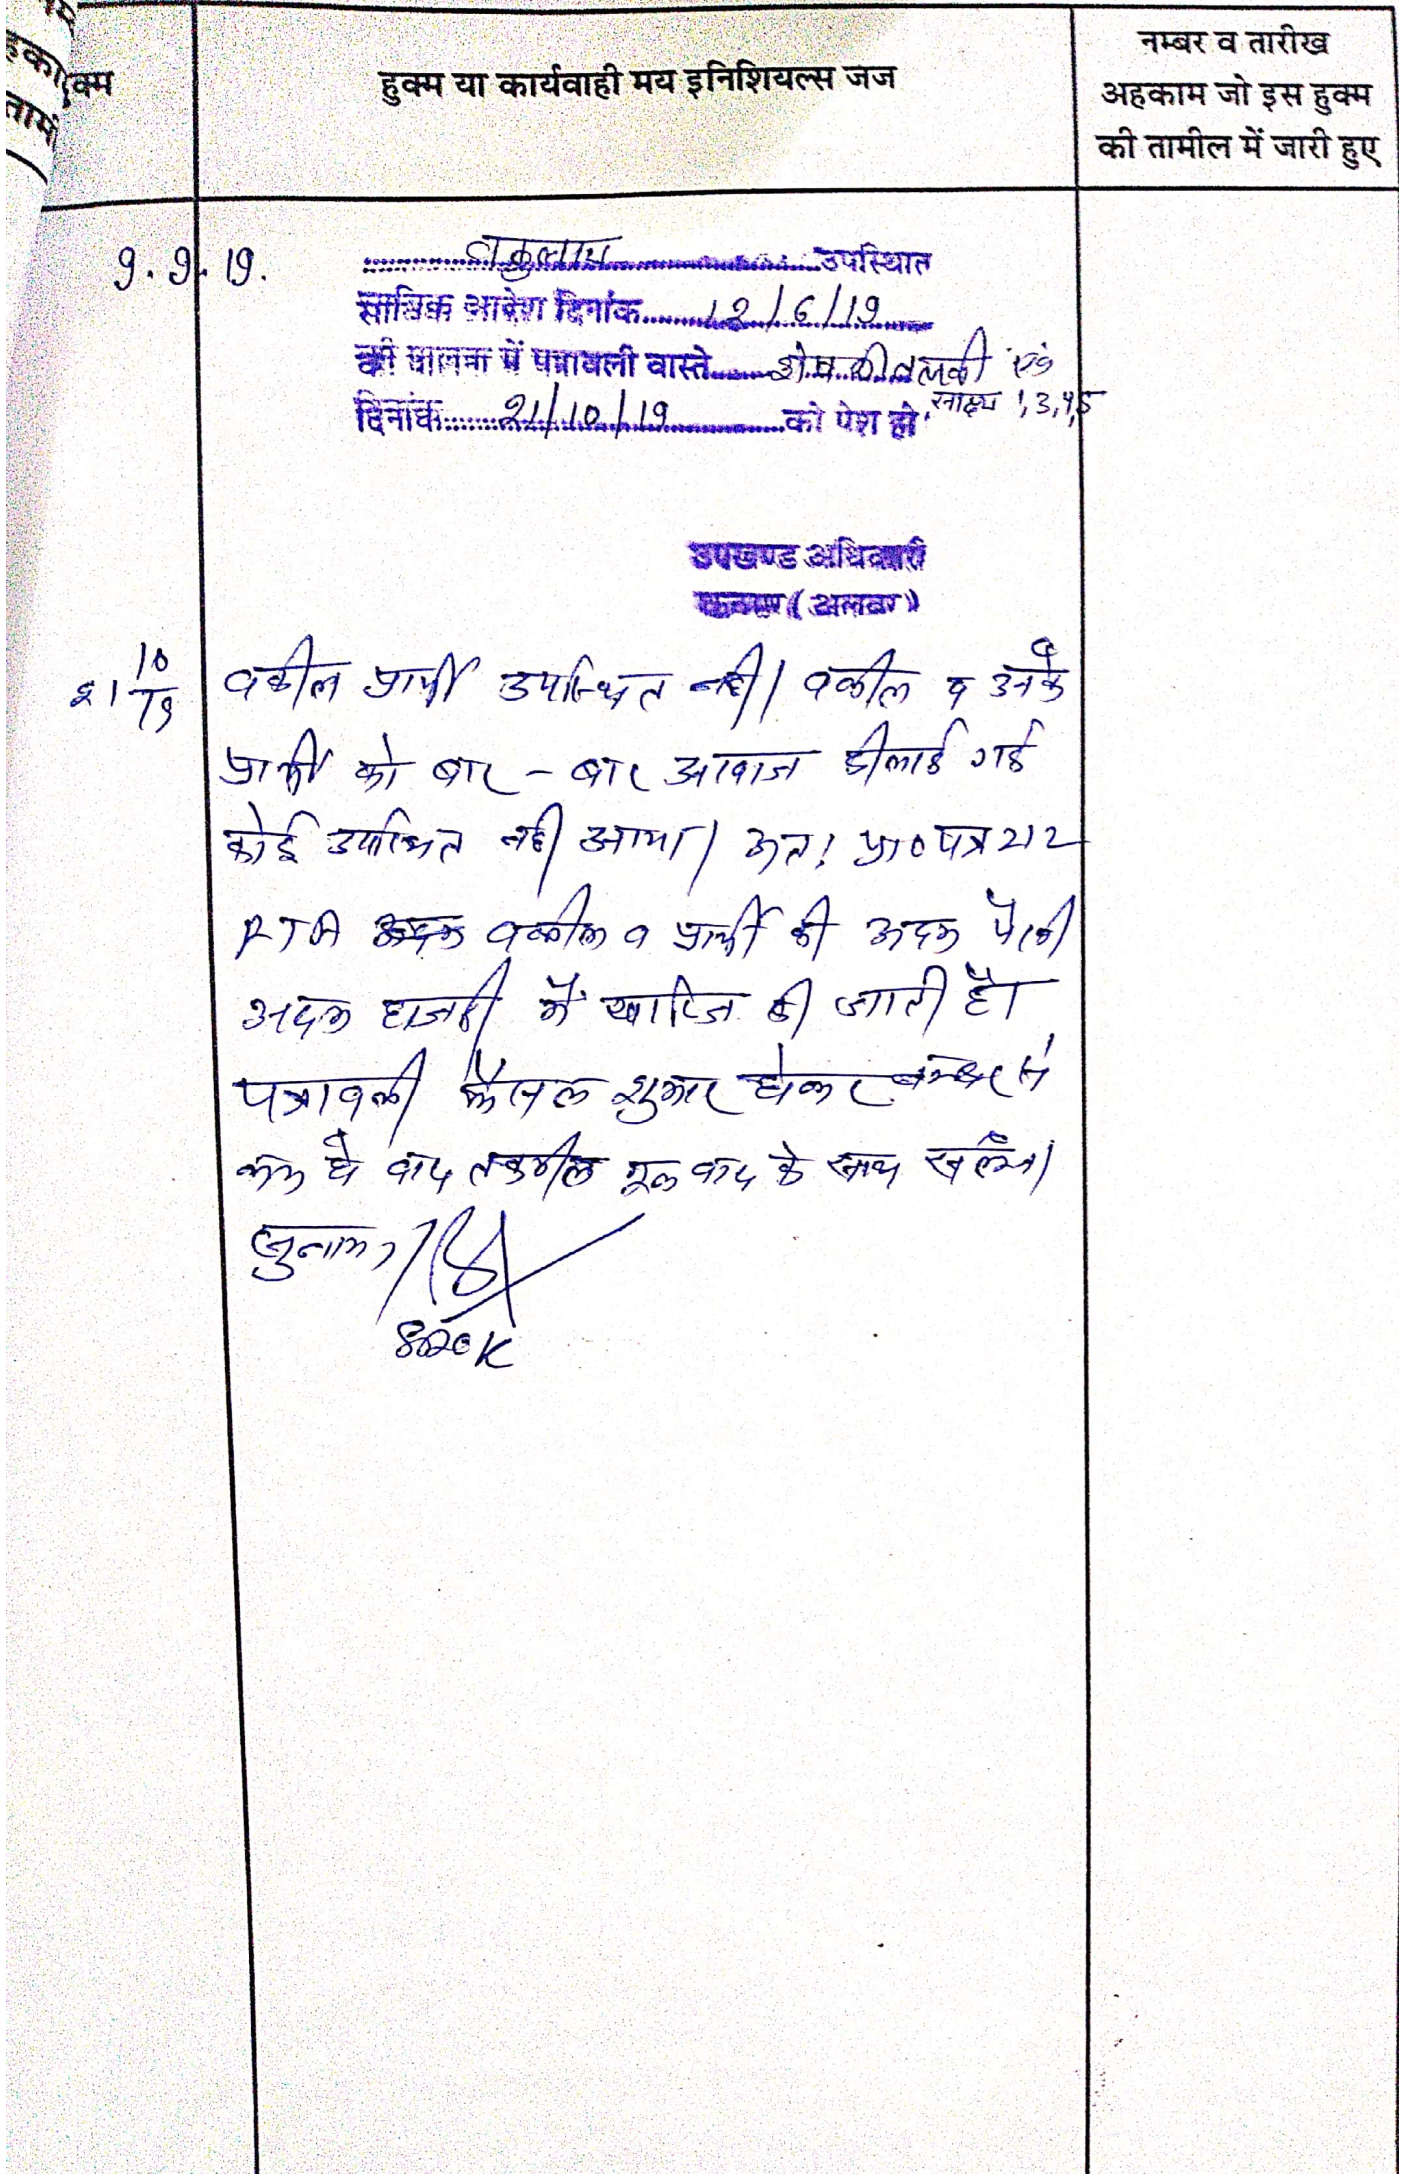 हुक्म
हुक्म या कार्यवाही मय इनिशियल्स जज
नम्बर व तारीख
अहकाम जो इस हुक्म
की तामील में जारी हुए
9.9.19.
वकुलाय उपस्थित
साबिक आदेश दिनांक 12/6/19
की पालना में पत्रावली वास्ते शेष की तलबी एवं
साक्ष्य 1,3,4,5
दिनांक 21/10/19 को पेश हो
उपखण्ड अधिकारी
(अलवर)
21/10/19
वकील प्रार्थी उपस्थित नही। वकील व उनके
प्रार्थी को बार - बार आवाज दीलाई गई
कोई उपस्थित नही आया। अतः प्रा०पत्र 212
RTA वकील व प्रार्थी की अदम पैरवी
अदम हाजरी में खारिज की जाती है।
पत्रावली फैसल शुमार होकर नम्बर से
कम हो बाद तकमील मूल वाद के साथ सलंग्न।